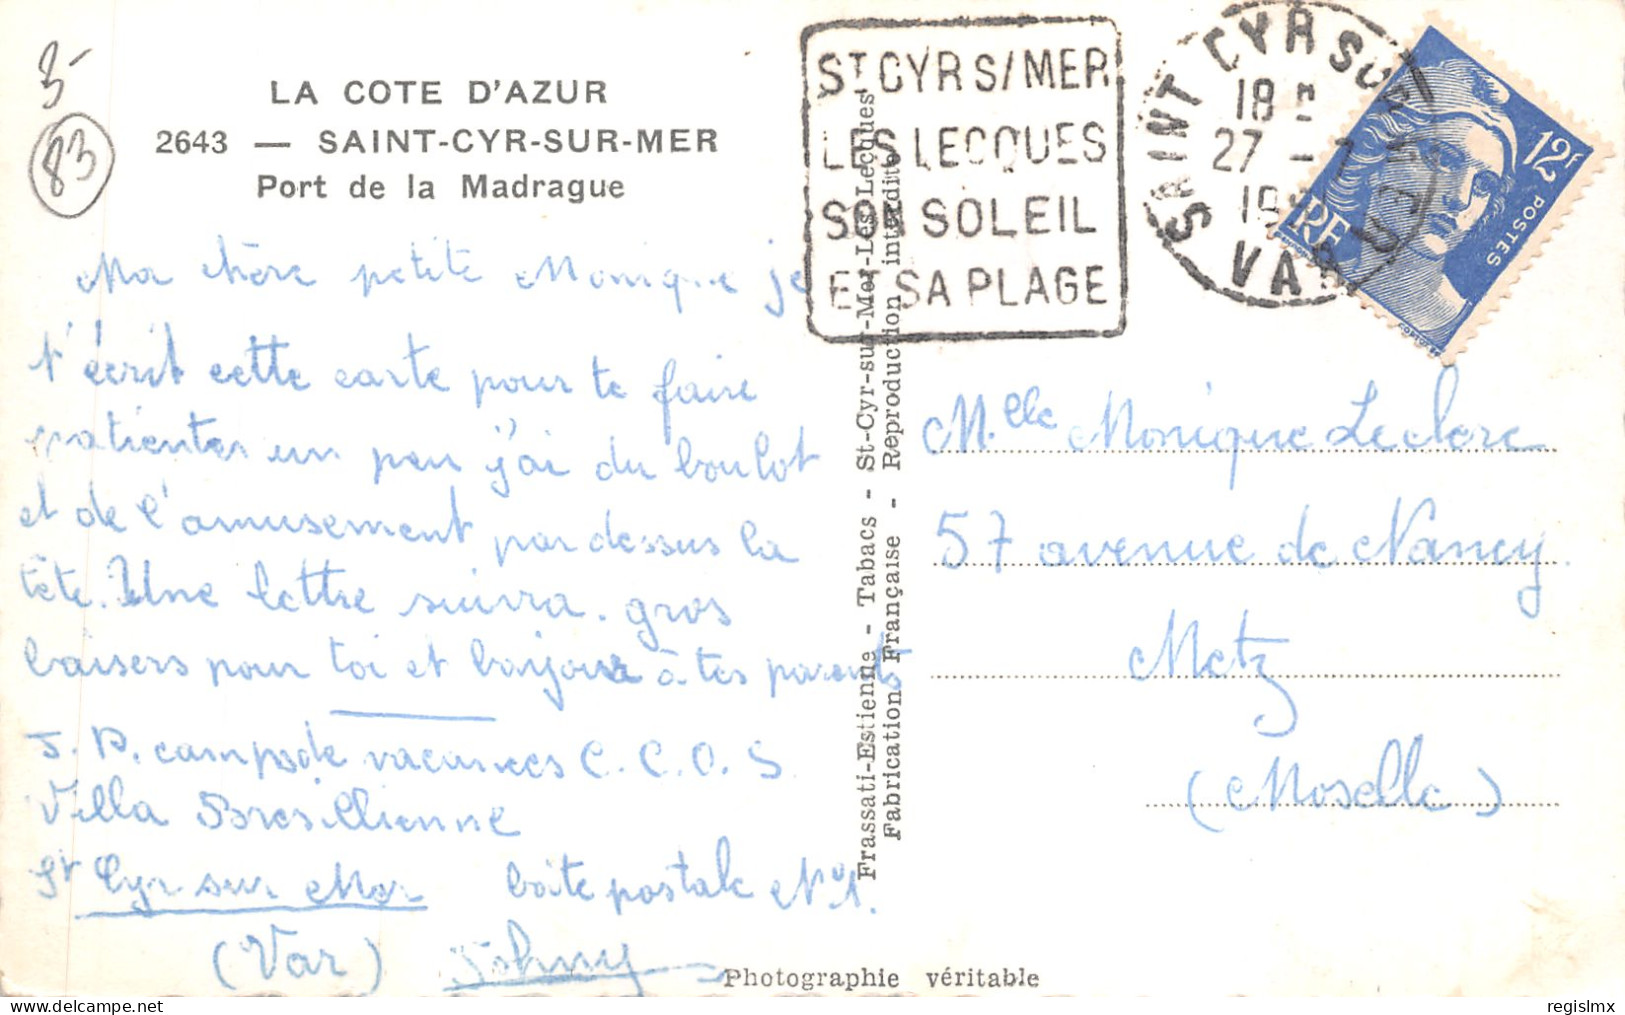 3-
83
LA COTE D'AZUR
2643 — SAINT-CYR-SUR-MER
Port de la Madrague
Ma chère petite Monique je
t'écrit cette carte pour te faire
patienter un peu j'ai du boulot
et de l'amusement par dessus la
tête. Une lettre suivra. gros
baisers pour toi et bonjour à tes parents
J. P. camps de vacances C. C. O. S
Villa Bresillienne
St Cyr sur Mer boîte postale N°1.
(Var) Johny
ST CYR S/MER
LES LECQUES
SON SOLEIL
ET SA PLAGE
SAINT CYR SUR MER
18
27 - 7
19
VAR
12F
POSTES
RF
Frassati-Estienne - Tabacs - St-Cyr-sur-Mer-Les-Lecques
Fabrication Française - Reproduction interdite
Mlle Monique Leclerc
57 avenue de Nancy
Metz
(Moselle)
Photographie véritable
regislmx